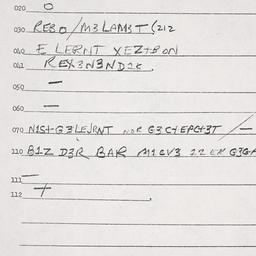 020 O
030 REBO/M3LAM3T(212
040 E LERNT XEZTBON
041 REX3N3ND2K.
050 —
060 —
070 N1S+G3LEJRNT NOR G3C+EPC+3T /—
110 B1Z D3R BAR
111 —
112 +